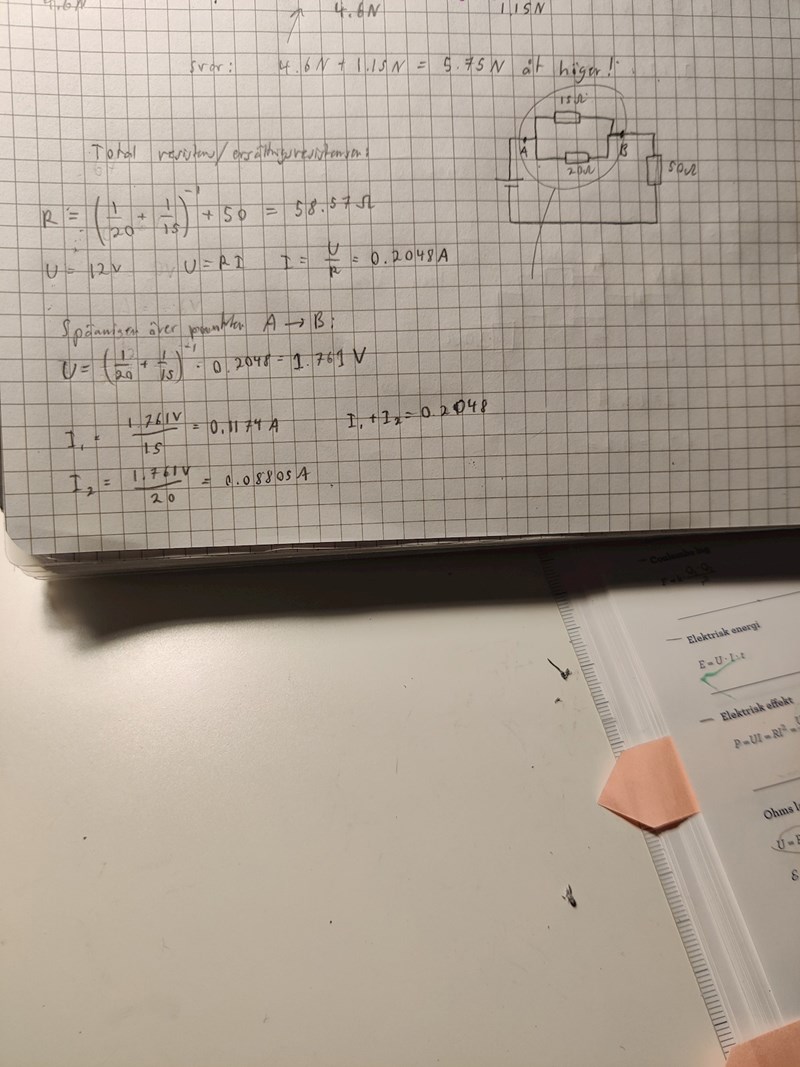 4.6N 4.6N 1.15N
Svar: 4.6N + 1.15N = 5.75N åt höger!
15Ω
A B
20Ω 50Ω
Total resistans/ersättningsresistansen:
R = (1/20 + 1/15)^-1 + 50 = 58.57Ω
U = 12V U = RI I = U/R = 0.2048A
Spänningen över punkten A → B:
U = (1/20 + 1/15)^-1 · 0.2048 = 1.761 V
I₁ = 1.761V/15 = 0.1174A I₁ + I₂ = 0.2048
I₂ = 1.761V/20 = 0.08805A
— Coulombs lag
— Elektrisk energi
E = U · I · t
— Elektrisk effekt
P = UI = RI² =
Ohms l
U =